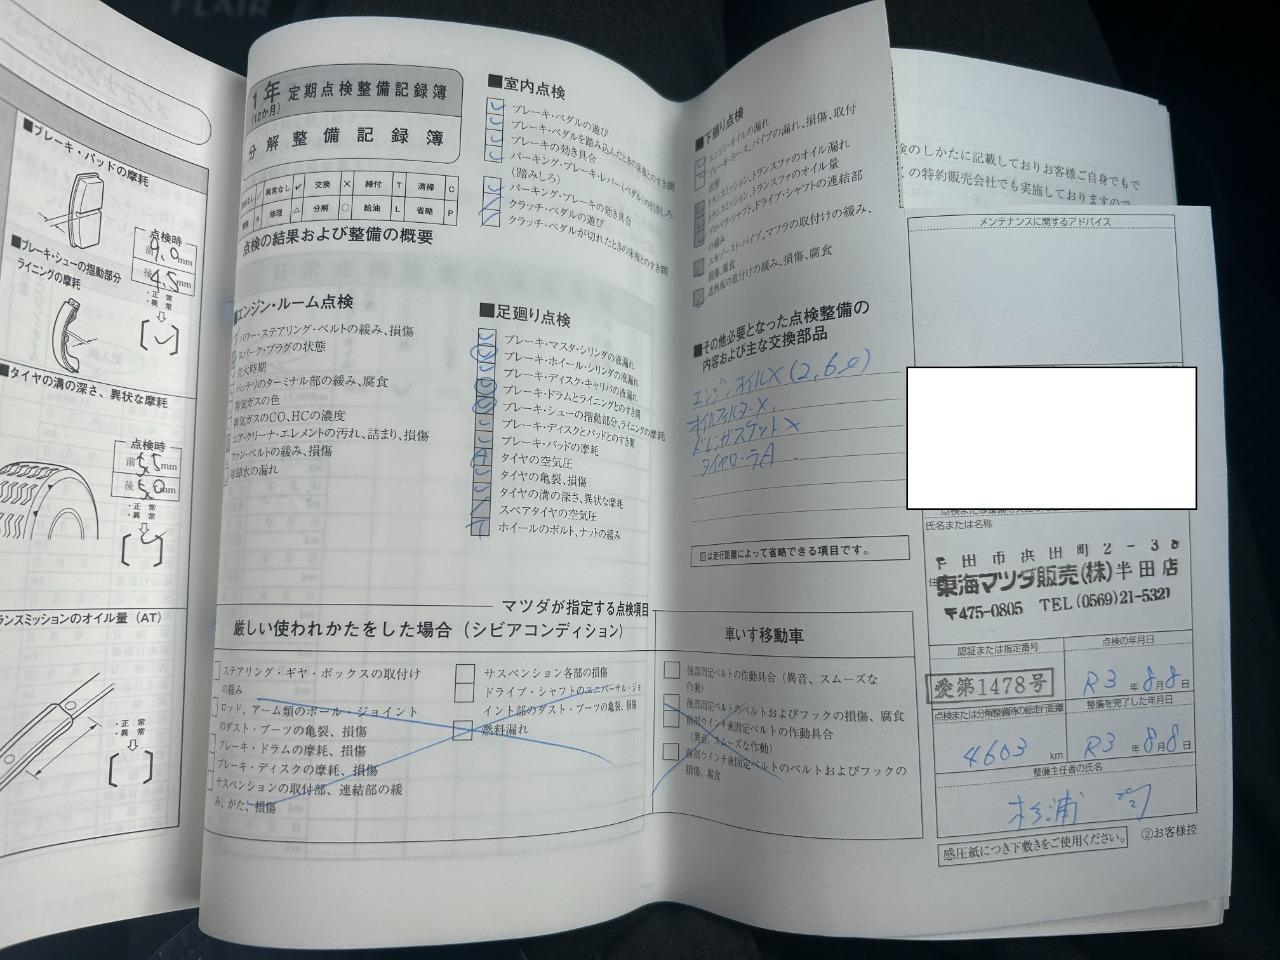 FLAIR
■ブレーキ・パッドの摩耗
点検時
前 9.0mm
後 4.5mm
・正常
・異常
■ブレーキ・シューの摺動部分
ライニングの摩耗
■タイヤの溝の深さ、異状な摩耗
点検時
前 5.5mm
後 5.0mm
・正常
・異常
ランスミッションのオイル量（AT）
・正常
・異常
1年 定期点検整備記録簿
(12か月)
分解整備記録簿
異常なし 交換 × 締付 T 清掃 C
A 修理 △ 分解 ○ 給油 L 省略 P
点検の結果および整備の概要
■エンジン・ルーム点検
パワー・ステアリング・ベルトの緩み、損傷
スパーク・プラグの状態
点火時期
バッテリのターミナル部の緩み、腐食
排気ガスの色
排気ガスのCO、HCの濃度
エア・クリーナ・エレメントの汚れ、詰まり、損傷
ファン・ベルトの緩み、損傷
冷却水の漏れ
■室内点検
ブレーキ・ペダルの遊び
ブレーキ・ペダルを踏み込んだときの床板とのすき間
ブレーキの効き具合
パーキング・ブレーキ・レバー(ペダル)の引きしろ
(踏みしろ)
パーキング・ブレーキの効き具合
クラッチ・ペダルの遊び
クラッチ・ペダルが切れたときの床板とのすき間
■足廻り点検
ブレーキ・マスタ・シリンダの液漏れ
ブレーキ・ホイール・シリンダの液漏れ
ブレーキ・ディスク・キャリパの液漏れ
ブレーキ・ドラムとライニングとのすき間
ブレーキ・シューの摺動部分、ライニングの摩耗
ブレーキ・ディスクとパッドとのすき間
ブレーキ・パッドの摩耗
タイヤの空気圧
タイヤの亀裂、損傷
タイヤの溝の深さ、異状な摩耗
スペアタイヤの空気圧
ホイールのボルト、ナットの緩み
■下廻り点検
エンジン・オイルの漏れ
ブレーキ・ホース、パイプの漏れ、損傷、取付
状態
トランスミッション、トランスファのオイル漏れ
トランスミッション、トランスファのオイル量
プロペラ・シャフト、ドライブ・シャフトの連結部
の緩み
エキゾースト・パイプ、マフラの取付けの緩み、
損傷、腐食
遮熱板の取付けの緩み、損傷、腐食
■その他必要となった点検整備の
内容および主な交換部品
エンジンオイル× (2,6ℓ)
オイルフィルター×
ドレンガスケット×
タイヤローテA
□は走行距離によって省略できる項目です。
マツダが指定する点検項目
厳しい使われかたをした場合（シビアコンディション）
ステアリング・ギヤ・ボックスの取付け
の緩み
ロッド、アーム類のボール・ジョイント
のダスト・ブーツの亀裂、損傷
ブレーキ・ドラムの摩耗、損傷
ブレーキ・ディスクの摩耗、損傷
サスペンションの取付部、連結部の緩
み、がた、損傷
サスペンション各部の損傷
ドライブ・シャフトのユニバーサル・ジョ
イント部のダスト・ブーツの亀裂、損傷
燃料漏れ
車いす移動車
後部固定ベルトの作動具合（異音、スムーズな
作動）
後部固定ベルトのベルトおよびフックの損傷、腐食
前部ウインチ兼固定ベルトの作動具合
（異音、スムーズな作動）
前部ウインチ兼固定ベルトのベルトおよびフックの
損傷、腐食
検のしかたに記載しておりお客様ご自身でもで
くの特約販売会社でも実施しておりますので
メンテナンスに関するアドバイス
氏名または名称
半田市浜田町2-38
東海マツダ販売(株)半田店
〒475-0805 TEL(0569)21-5321
認証または指定番号
愛第1478号
点検の年月日
R3年8月8日
点検または分解整備時の総走行距離
4603 km
整備を完了した年月日
R3年8月8日
整備主任者の氏名
杉浦
感圧紙につき下敷きをご使用ください。
②お客様控